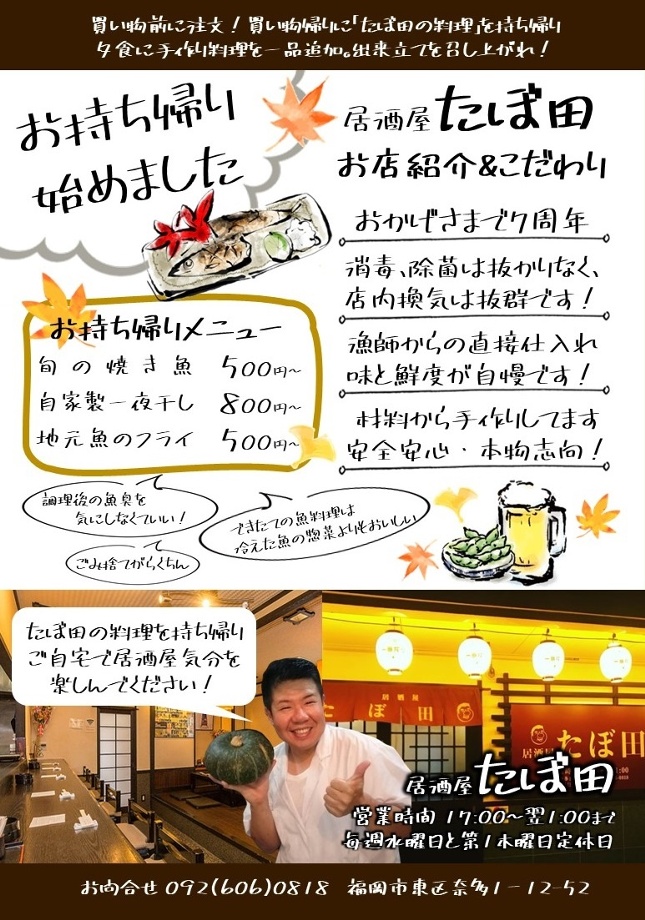 買い物前に注文!買い物帰りに「たぼ田の料理」を持ち帰り
夕食に手作り料理を一品追加。出来立てを召し上がれ!
お持ち帰り
始めました
居酒屋 たぼ田
お店紹介&こだわり
おかげさまで7周年
消毒、除菌は抜かりなく、
店内換気は抜群です!
漁師からの直接仕入れ
味と鮮度が自慢です!
材料から手作りしてます
安全安心・本物志向!
お持ち帰りメニュー
旬の焼き魚 500円〜
自家製一夜干し 800円〜
地元魚のフライ 500円〜
調理後の魚臭を
気にしなくていい!
できたての魚料理は
冷えた魚の惣菜よりもおいしい
ごみ捨てがらくちん
たぼ田の料理を持ち帰り
ご自宅で居酒屋気分を
楽しんでください!
居酒屋
たぼ田
居酒屋 たぼ田
居酒屋 たぼ田
営業時間 17:00〜翌1:00まで
毎週水曜日と第1木曜日定休日
お問合せ 092(606)0818 福岡市東区奈多1-12-52